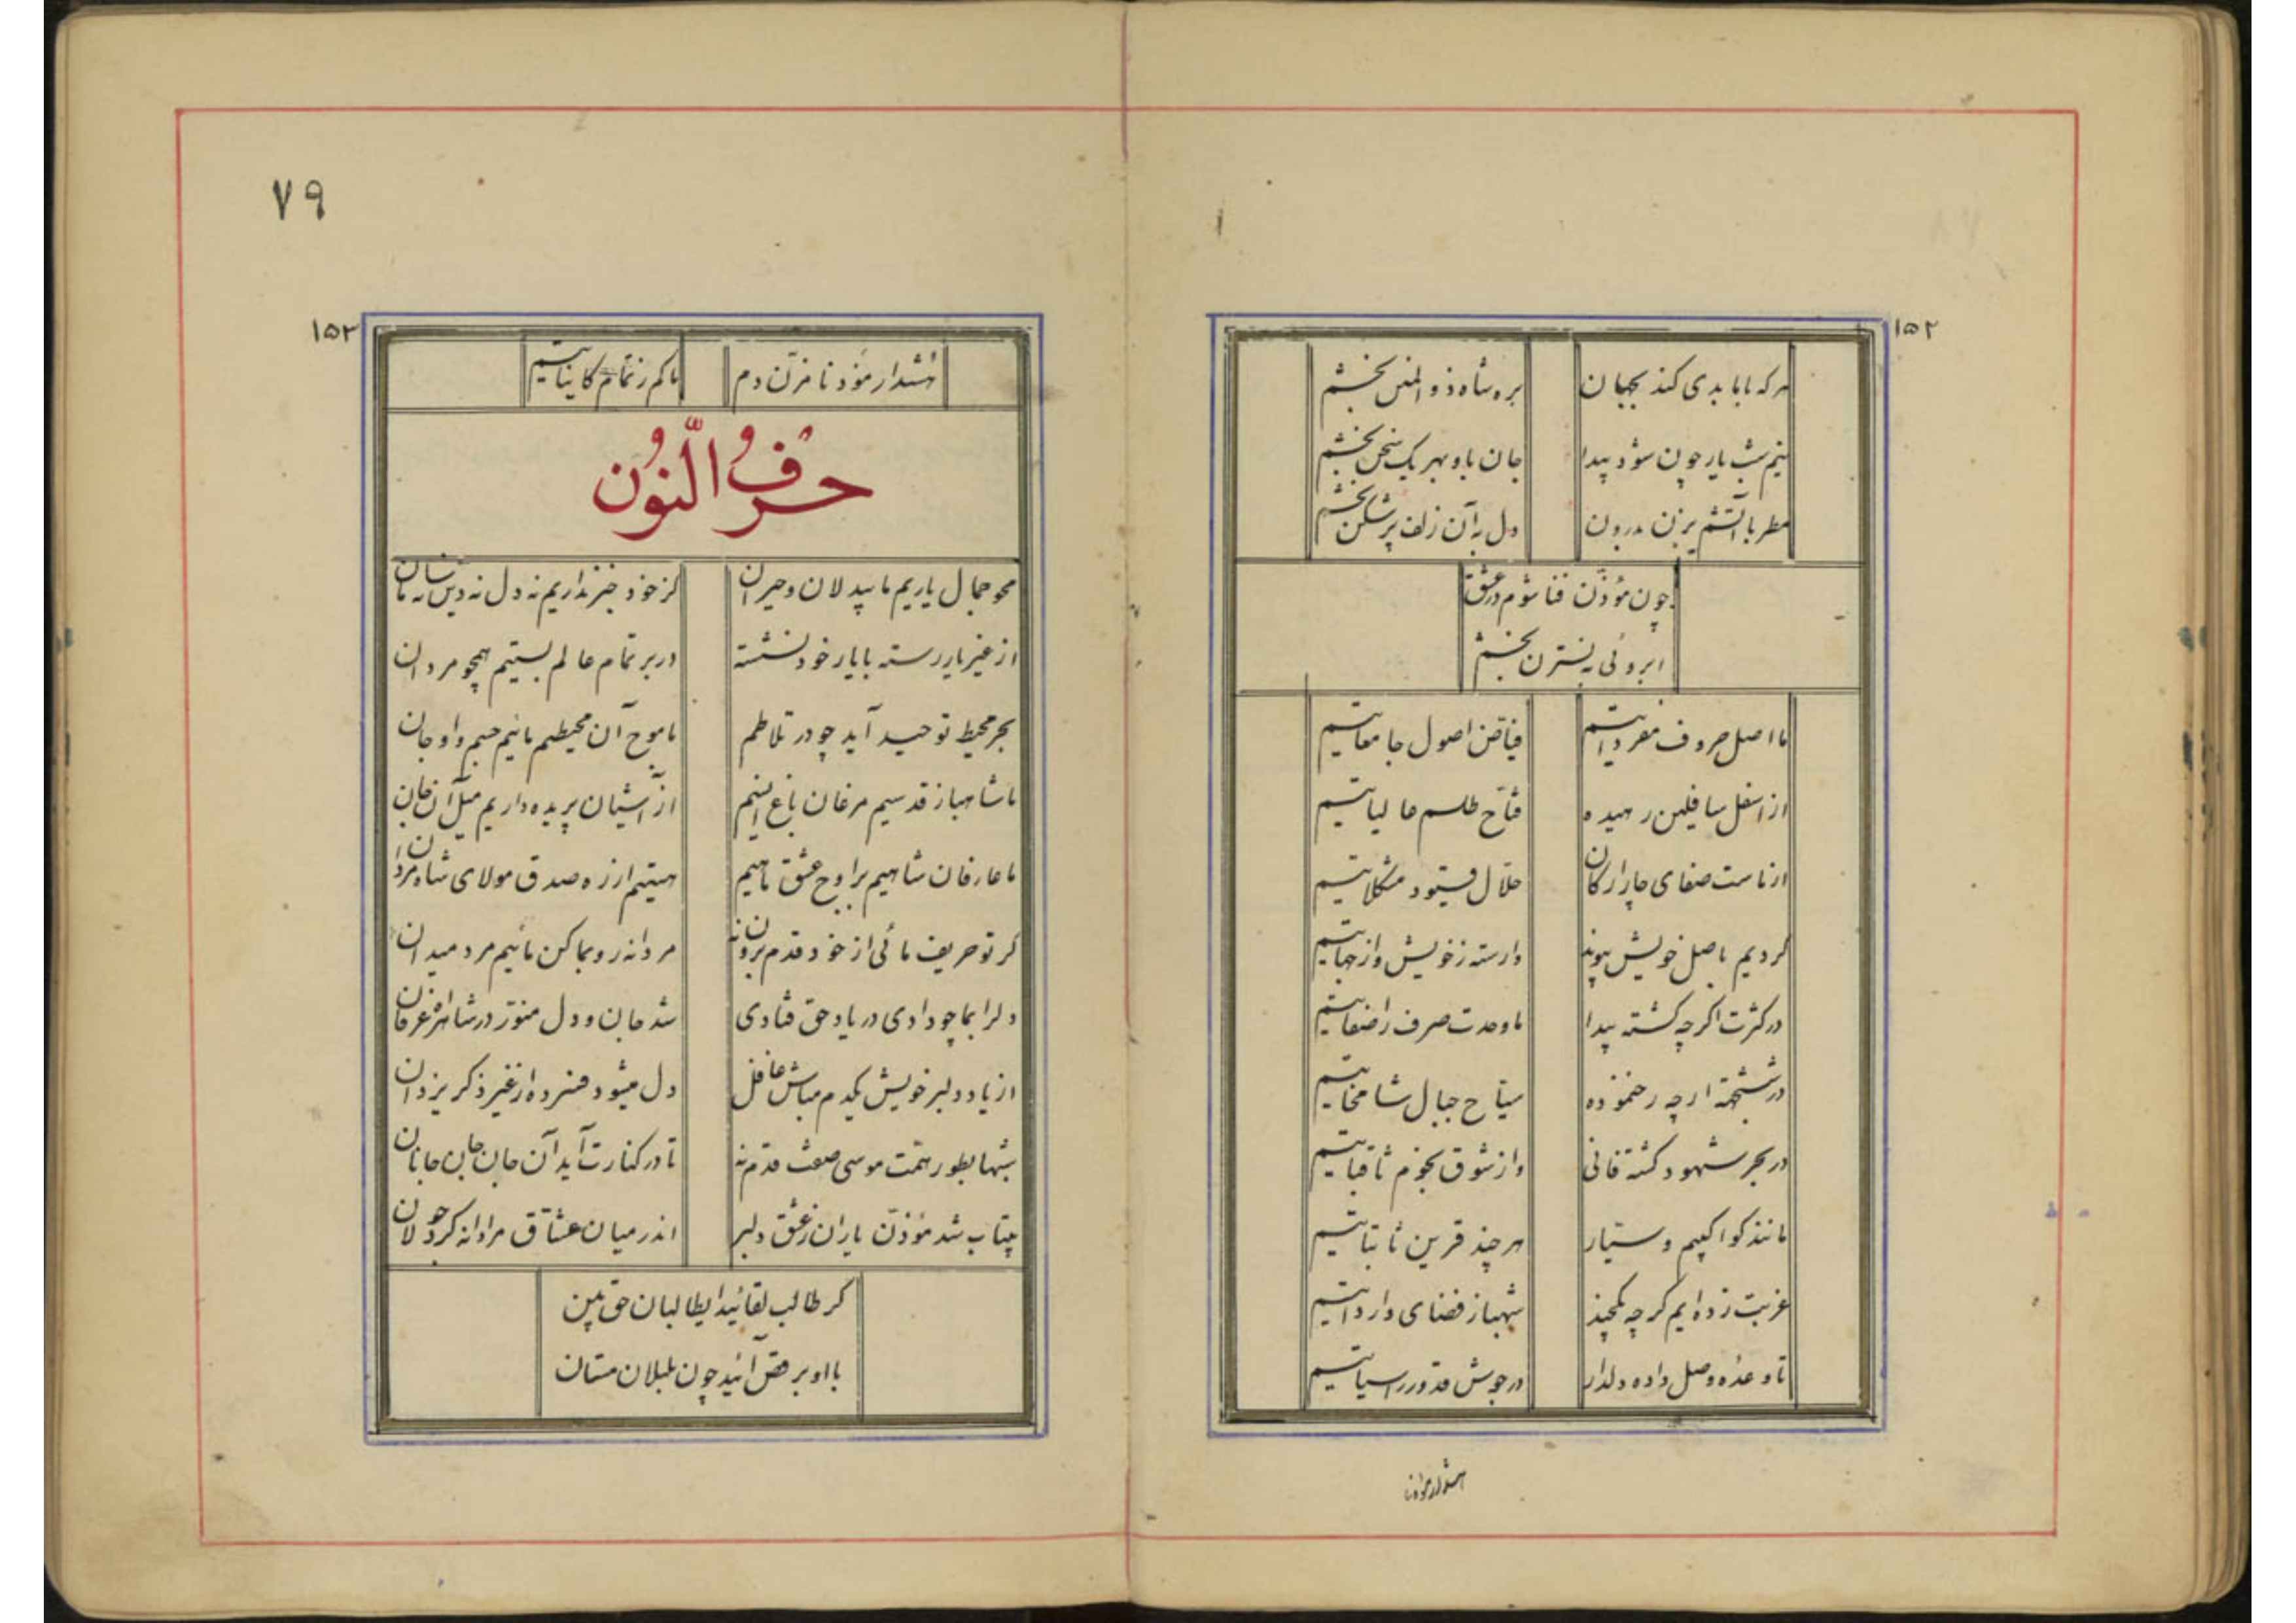 ۱۵۲
هرکه با ما بدی کند بجهان    بره شاه ذوالمنن بخشم
نیم شب یار چون شود پیدا    جان باو بهر یک سخن بخشم
مطربا آتشم بزن بدرون    دل به آن زلف پرشکن بخشم
چون مؤذّن فنا شوم در عشق
ابروئی به نسترن بخشم
ما اصل حروف مفرداتیم    فیّاض اصول جامعاتیم
از اسفل سافلین رهیده    فتّاح طلسم عالیاتیم
از ماست صفای چار ارکان    حلّال قیود مشکلاتیم
کردیم باصل خویش پیوند    وارسته ز خویش و از جهاتیم
در کثرت اکرچه کشته پیدا    ما وحدت صرف را صفاتیم
در ششجهة ارچه رخ نموده    سیّاح جبال شامخاتیم
در بحر شهود کشته فانی    وز شوق نجوم ثاقباتیم
مانند کواکبیم و سیّار    هر چند قرین ثابتاتیم
غربت زده ایم کرچه یکچند    شهباز فضای وارداتیم
تا وعدهٔ وصل داده دلدار    در جوش قدور راسیاتیم
هشدار مؤذنا
۷۹
۱۵۳
هشدار مؤذنا مزن دم    ما کم ز تمام کایناتیم
حرفُ النّون
محو جمال یاریم ما بیدلان و حیران    کز خود خبر نداریم نه دل نه دین نه سامان
از غیر یار رسته با یار خود نشسته    در بر تمام عالم بستیم همچو مردان
بحر محیط توحید آید چو در تلاطم    ما موج آن محیطیم مائیم جسم و او جان
ما شاهباز قدسیم مرغان باغ انسیم    از آشیان پریده داریم میل آن خان
ما عارفان شاهیم بر اوج عشق ماهیم    هستیم از ره صدق مولای شاه مردان
کر تو حریف مائی از خود قدم برون نه    مردانه رو بما کن مائیم مرد میدان
دل را بما چو دادی در یاد حق فتادی    شد جان و دل منوّر در شاهراه عرفان
از یاد دلبر خویش یکدم مباش غافل    دل میشود فسرده از غیر ذکر یزدان
شبها بطور همّت موسی صفت قدم نه    تا در کنارت آید آن جان جان جانان
بیتاب شد مؤذّن یاران ز عشق دلبر    اندر میان عشّاق مردانه کرد جولان
کر طالب لقائید ایطالبان حق بین
با او برقص آئید چون بلبلان مستان